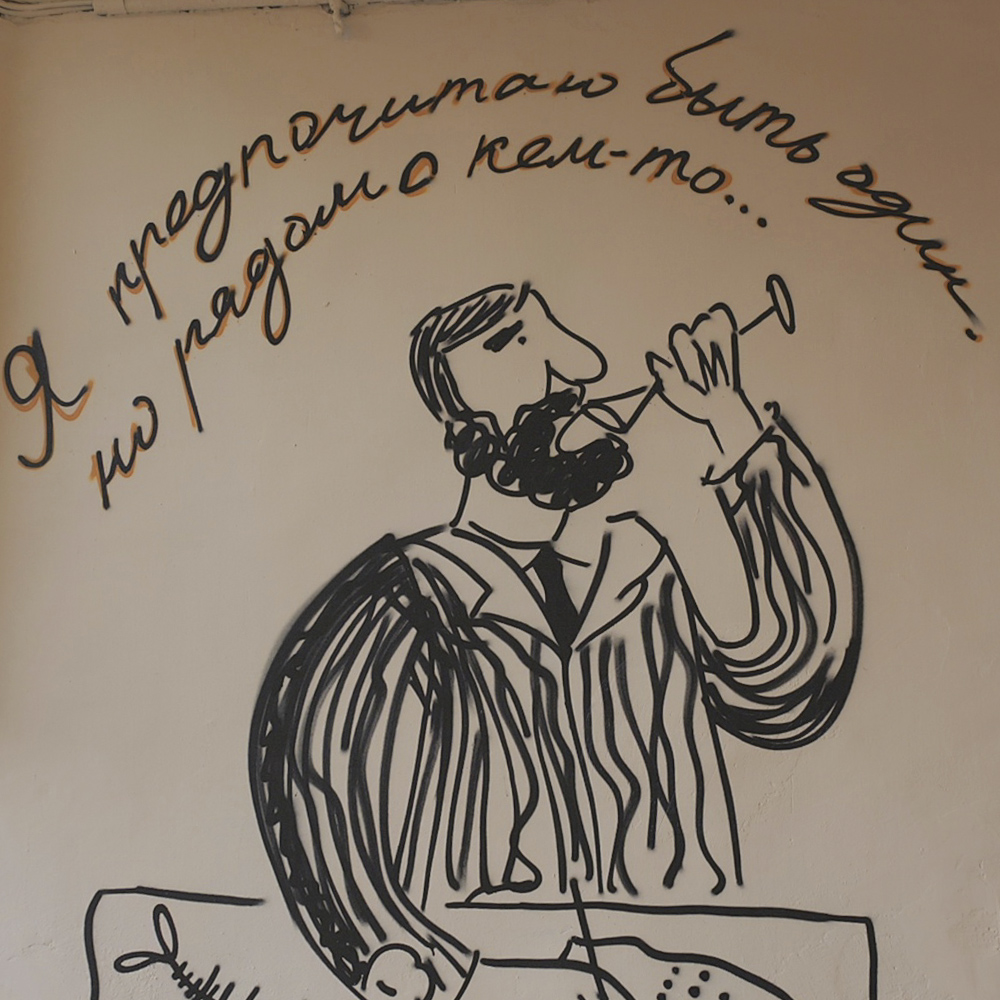 Я предпочитаю быть один.
но рядом с кем-то...